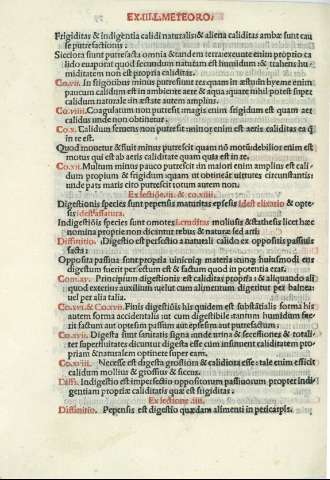 EX.IIII.METEORO.
Frigiditas & indigentia calidi naturalis: & aliena caliditas ambæ sunt cau
sæ putrefactionis.
Sicciora fiunt putrefacta omnia & tandem terra: exeunte enim proprio ca
lido euaporat quod secundum naturam est humidum: & trahens hu
miditatem non est propria caliditas.
Co.vii. In frigoribus minus putrefiunt res quam in æstu: in hyeme enim
paucum calidum est in ambiente aere & aqua: quare nihil potest super
calidum naturale: in æstate autem amplius.
Co.viii. Coagulatum non putrefit: magis enim frigidum est quam aer
calidus: unde non obtinetur.
Co.x. Calidum feruens non putrefit: minor enim est aeris caliditas ea q̄
in re est.
Quod mouetur & fluit minus putrescit quam nō motū: debilior enim est
motus qui est ab aeris caliditate quam quia est in re.
Co.xi. Multum minus pauco putrefit: in maiori enim amplius est cali
dum propium & frigidum quam ut obtineāt uirtutes circunstantis:
unde pars maris cito putrescit totum autem non.
Ex lectione.ii. & co.xiii.
Digestionis species sunt pepensis maturitas epsesis idest elixatio & opte-
sis idest assatura.
Indigestiōis species sunt omotesi.cruditas moliusis & statesis licet hæc
nomina proprie non dicuntur rebus & natura: sed arti
Diffinitio. Digestio est perfectio a naturali calido ex oppositis passiuis
facta:
Opposita passiua sunt propria unicuiq̄ materia: cum enim huiusmodi erit
digestum fuerit perfectum est & factum quod in potentia erat.
Com.xv. Principium digestionis est caliditas propria & aliquando ali
quod exterius auxilium: uelut cum alimentum digeritur per balnea:
uel per alia talia.
Co.xvi. & Co.xvii. Finis digestiōis his quidem est substātialis forma his
autem forma accidentalis ut cum digestibile tantum humidum fue-
rit factum aut optesim passum aut epsesim aut putrefactum.
Co.xvii. Digesta sunt sanitatis signa unde urina & secessiones & total-
ter superfluitates dicuntur digesta esse cum insinuent caliditatem pro-
priam & naturalem optinere super eam.
Co.xviii. Necesse est digesta grossiora & calidiora esse: tale enim efficit
calidum mollius & grossius & siccus.
Diffi. Indigestio est imperfectio oppositorum passiuorum propter indi
gentiam propriæ caliditatis quæ est frigiditas.
Ex lectione .iii.
Diffinitio. Pepensis est digestio quædam alimenti in pericarpis.